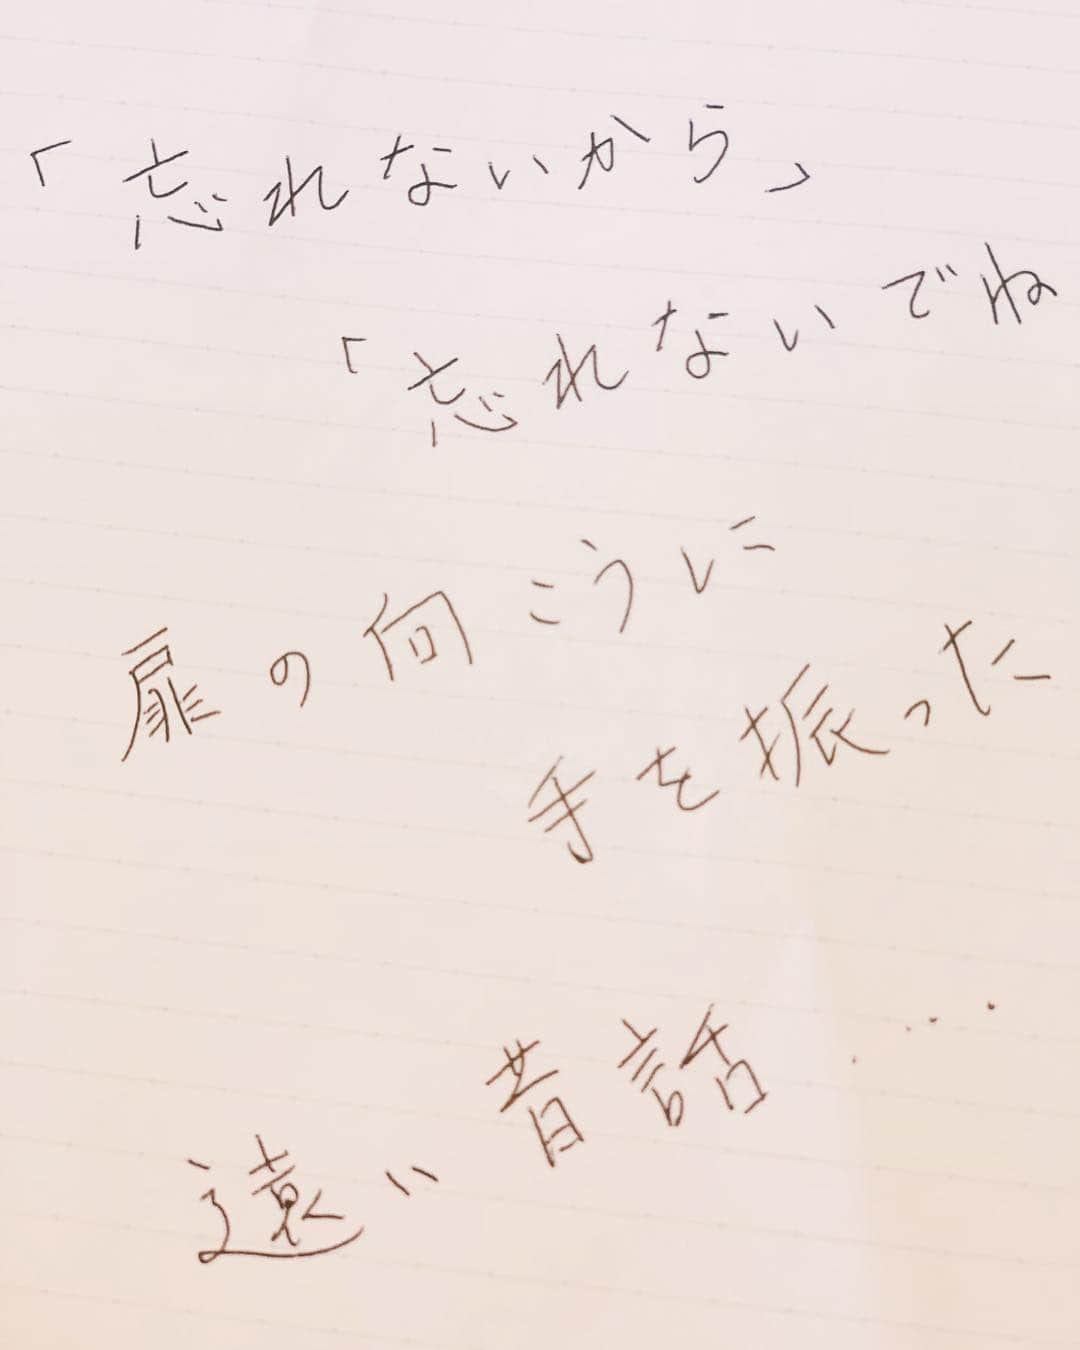 「忘れないから」
「忘れないでね
扉の向こうに
手を振った
遠い昔話....